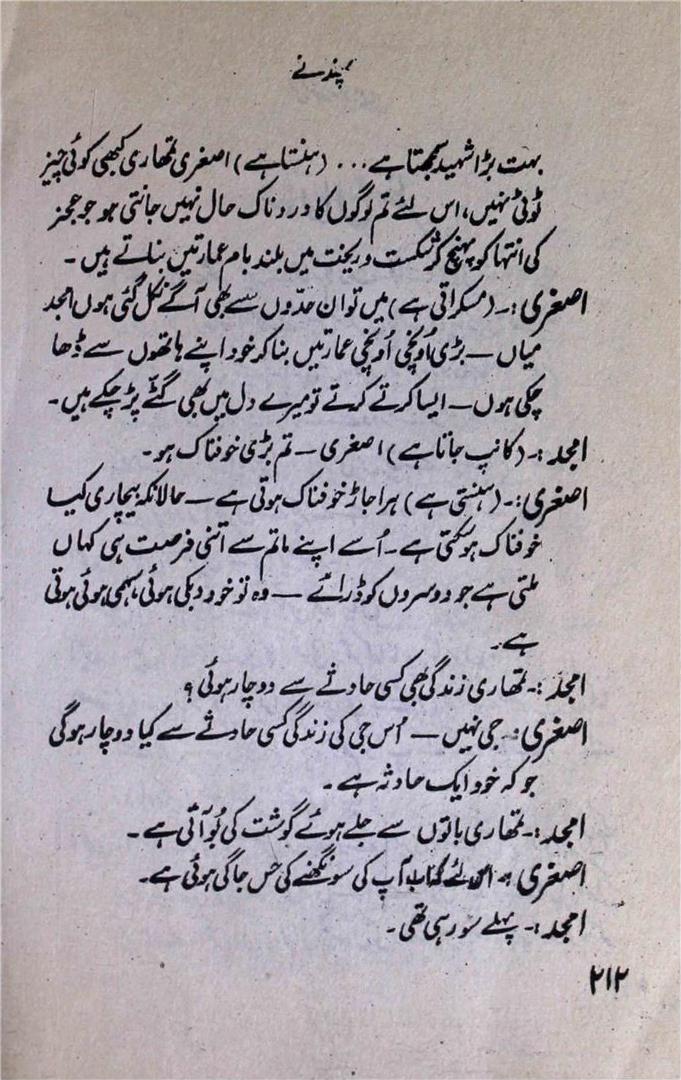 پھندنے
بہت بڑا شہید سمجھتا ہے... (ہنستا ہے) اصغری تمھاری کبھی کوئی چیز
ٹوٹی نہیں، اس لئے تم لوگوں کا دردناک حال نہیں جانتی ہو جو عجز
کی انتہا کو پہنچ کر شکست و ریخت میں بلند بام عمارتیں بناتے ہیں۔
اصغری:۔ (مسکراتی ہے) میں تو ان حدّوں سے بھی آگے نکل گئی ہوں امجد
میاں — بڑی اُونچی اُونچی عمارتیں بنا کر خود اپنے ہاتھوں سے ڈھا
چکی ہوں — ایسا کرتے کرتے تو میرے دل میں بھی گٹے پڑ چکے ہیں۔
امجد:۔ (کانپ جاتا ہے) اصغری — تم بڑی خوفناک ہو۔
اصغری:۔ (ہنستی ہے) ہر اجاڑ خوفناک ہوتی ہے — حالانکہ بیچاری کیا
خوفناک ہو سکتی ہے۔ اُسے اپنے ماتم سے اتنی فرصت ہی کہاں
ملتی ہے جو دوسروں کو ڈرائے — وہ تو خود دبکی ہوئی، سہمی ہوئی ہوتی
ہے۔
امجد:۔ تمھاری زندگی بھی کسی حادثے سے دوچار ہوئی؟
اصغری:۔ جی نہیں — اُس جی کی زندگی کسی حادثے سے کیا دوچار ہوگی
جو کہ خود ایک حادثہ ہے۔
امجد:۔ تمھاری باتوں سے جلے ہوئے گوشت کی بُو آتی ہے۔
اصغری:۔ اس لئے کہ اب آپ کی سونگھنے کی حس جاگی ہوئی ہے۔
امجد:۔ پہلے سو رہی تھی۔
۲۱۲